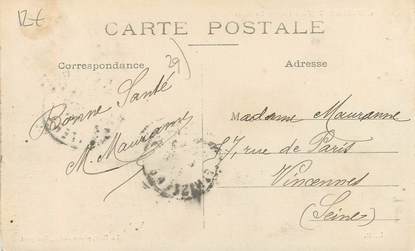 12€
CARTE POSTALE
Correspondance
29
Adresse
Bonne Santé
M. Mauranne
Madame Mauranne
7, rue de Paris
Vincennes
(Seine)